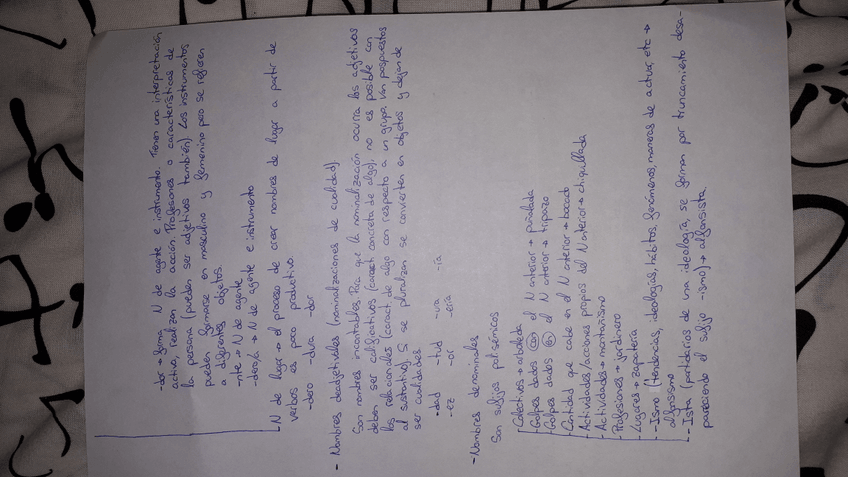 -dor → forma N de agente e instrumento. Tienen una interpretación
activa, realizan la acción. Profesiones o características de
la persona (pueden ser adjetivos también). Los instrumentos
pueden formarse en masculino y femenino pero se refieren
a diferentes objetos.
-nte → N de agente
-dero/a → N de agente e instrumento
- N de lugar → el proceso de crear nombres de lugar a partir de
verbos es poco productivo
-dero -dura -dor
- Nombres deadjetivales (nominalizaciones de cualidad)
Son nombres incontables. Para que la nominalización ocurra los adjetivos
deben ser calificativos (caract concreta de algo), no es posible con
los relacionales (caract de algo con respecto a un grupo, van pospuestos
al sustantivo). Si se pluralizan se convierten en objetos y dejan de
ser cualidades
-dad -tud -ura -ía
-ez -or -ería
- Nombres denominales
Son sufijos polisémicos
- Colectivos → arboleda
- Golpes dados con el N anterior → puñalada
- Golpes dados en el N anterior → tripazo
- Cantidad que cabe en el N anterior → bocado
- Actividades/acciones propias del N anterior → chiquillada
- Actividades → montañismo
- Profesiones → jardinero
- Lugares → zapatería
- -Ismo (tendencias, ideologías, hábitos, fenómenos, maneras de actuar, etc →
- -Ista (partidarios de una ideología, se forman por truncamiento desa-
pareciendo el sufijo -ismo) →